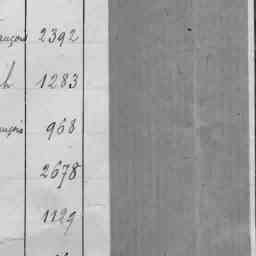 ançois 2392
h 1283
ançois 968
2678
1129